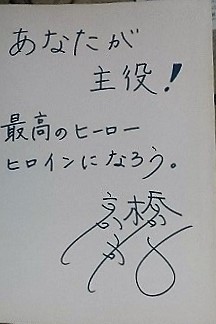 あなたが
主役!
最高のヒーロー
ヒロインになろう。
京橋